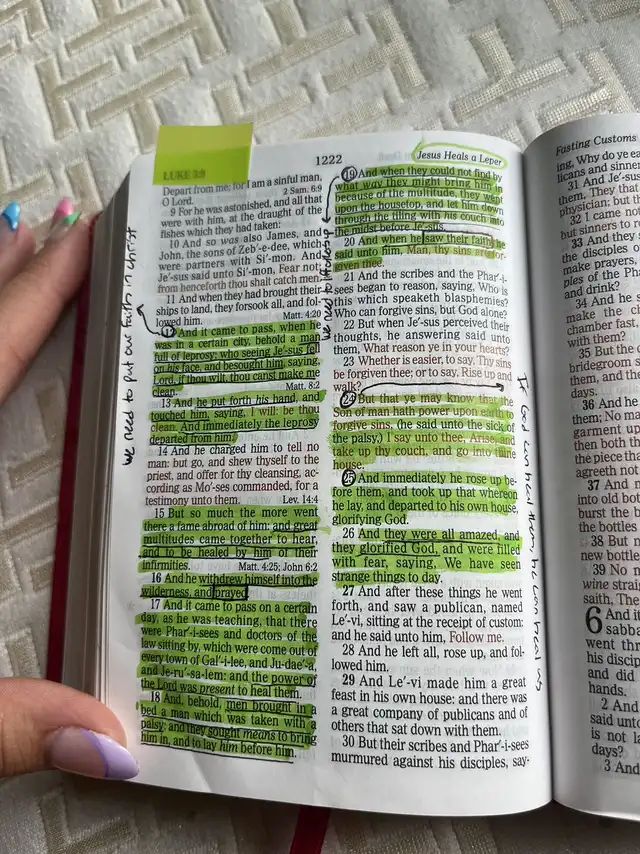 LUKE 5:9
1222
Jesus Heals a Leper
Depart from me; for I am a sinful man,
O Lord. 2 Sam. 6:9
9 For he was astonished, and all that
were with him, at the draught of the
fishes which they had taken:
10 And so was also James, and
John, the sons of Zeb′-e-dee, which
were partners with Si′-mon. And
Je′-sus said unto Si′-mon, Fear not;
from henceforth thou shalt catch men.
11 And when they had brought their
ships to land, they forsook all, and fol-
lowed him. Matt. 4:20
12 And it came to pass, when he
was in a certain city, behold a man
full of leprosy: who seeing Je′-sus fell
on his face, and besought him, saying,
Lord, if thou wilt, thou canst make me
clean. Matt. 8:2
13 And he put forth his hand, and
touched him, saying, I will: be thou
clean. And immediately the leprosy
departed from him.
14 And he charged him to tell no
man: but go, and shew thyself to the
priest, and offer for thy cleansing, ac-
cording as Mo′-ses commanded, for a
testimony unto them. Lev. 14:4
15 But so much the more went
there a fame abroad of him: and great
multitudes came together to hear,
and to be healed by him of their
infirmities. Matt. 4:25; John 6:2
16 And he withdrew himself into the
wilderness, and prayed.
17 And it came to pass on a certain
day, as he was teaching, that there
were Phar′-i-sees and doctors of the
law sitting by, which were come out of
every town of Gal′-i-lee, and Ju-dae′-a,
and Je-ru′-sa-lem: and the power of
the Lord was present to heal them.
18 And, behold, men brought in a
bed a man which was taken with a
palsy: and they sought means to bring
him in, and to lay him before him.
we need to put our faith in christ
19 And when they could not find by
what way they might bring him in
because of the multitude, they went
upon the housetop, and let him down
through the tiling with his couch into
the midst before Je′-sus.
20 And when he saw their faith, he
said unto him, Man, thy sins are for-
given thee.
21 And the scribes and the Phar′-i-
sees began to reason, saying, Who is
this which speaketh blasphemies?
Who can forgive sins, but God alone?
22 But when Je′-sus perceived their
thoughts, he answering said unto
them, What reason ye in your hearts?
23 Whether is easier, to say, Thy sins
be forgiven thee; or to say, Rise up and
walk?
24 But that ye may know that the
Son of man hath power upon earth to
forgive sins, (he said unto the sick of
the palsy,) I say unto thee, Arise, and
take up thy couch, and go into thine
house.
25 And immediately he rose up be-
fore them, and took up that whereon
he lay, and departed to his own house,
glorifying God.
26 And they were all amazed, and
they glorified God, and were filled
with fear, saying, We have seen
strange things to day.
27 And after these things he went
forth, and saw a publican, named
Le′-vi, sitting at the receipt of custom:
and he said unto him, Follow me.
28 And he left all, rose up, and fol-
lowed him.
29 And Le′-vi made him a great
feast in his own house: and there was
a great company of publicans and of
others that sat down with them.
30 But their scribes and Phar′-i-sees
murmured against his disciples, say-
we need to
If God can heal them, he can heal us
Fasting Customs
ing, Why do ye ea
licans and sinner
31 And Je′-sus
them, They that
physician; but th
32 I came no
but sinners to re
33 And they s
the disciples o
make prayers,
ples of the Pha
and drink?
34 And he s
make the c
chamber fast,
with them?
35 But the
bridegroom s
them, and
days.
36 And he
them; No ma
garment up
then both t
the piece tha
agreeth not
37 And n
into old bot
burst the b
the bottles
38 But n
new bottle
39 No n
wine strai
saith, The
6 And it
sabb
went thr
his discip
and did
hands.
2 And
said unto
is not la
days?
3 And